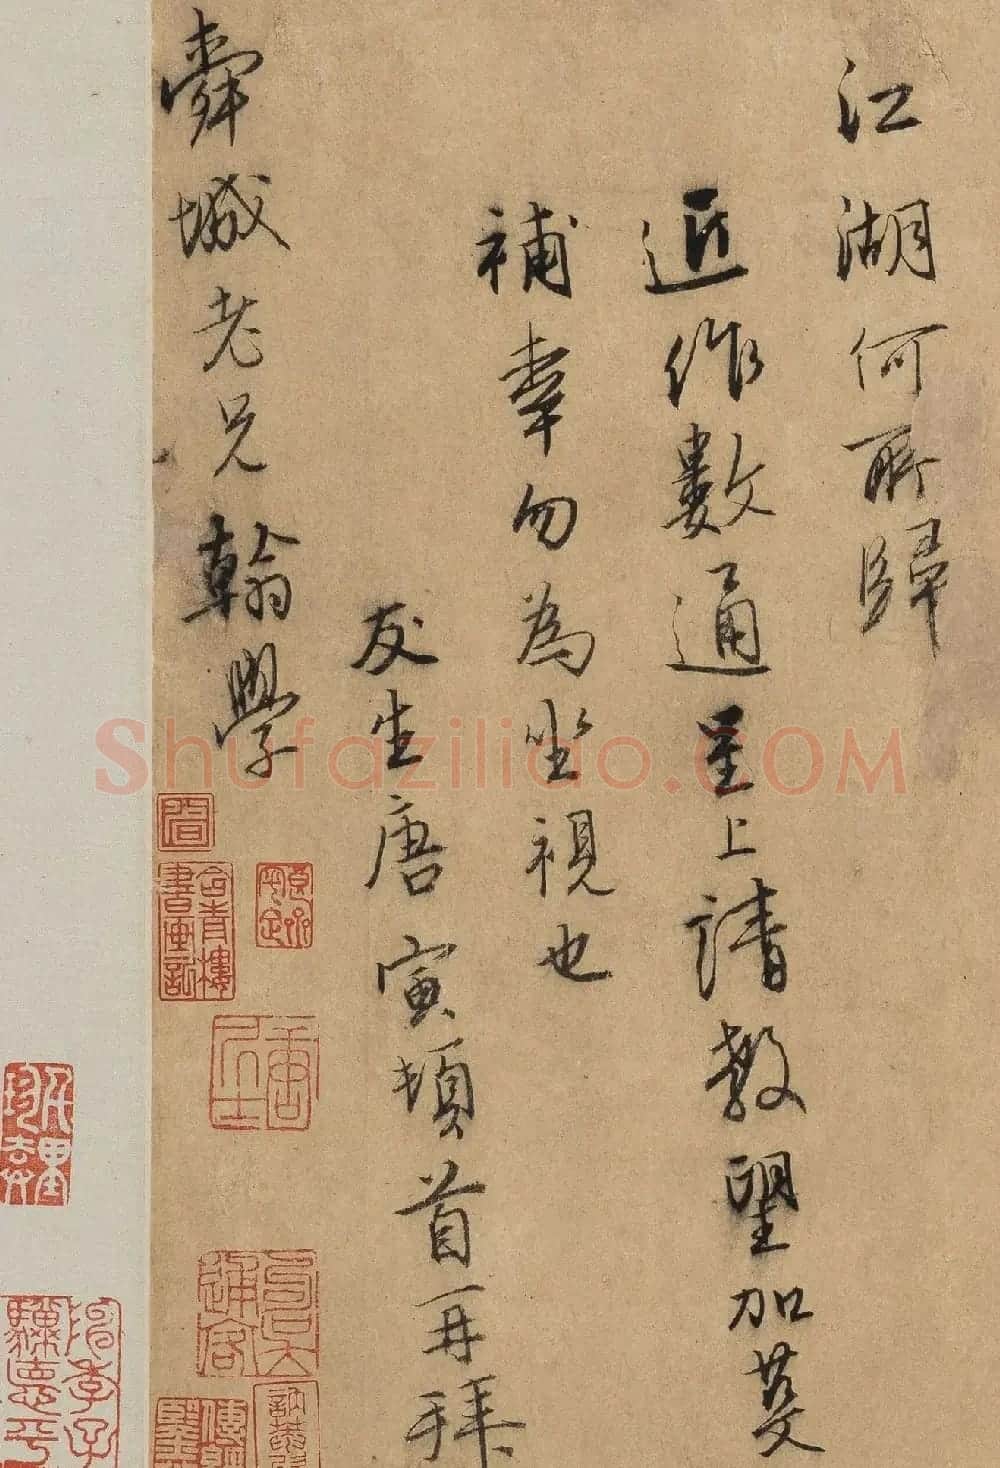 江湖何所歸
近作數通呈上請教望加芟
補幸勿為坐視也
友生唐寅頓首再拜
舜城老兄翰學
Shufaziliao.COM